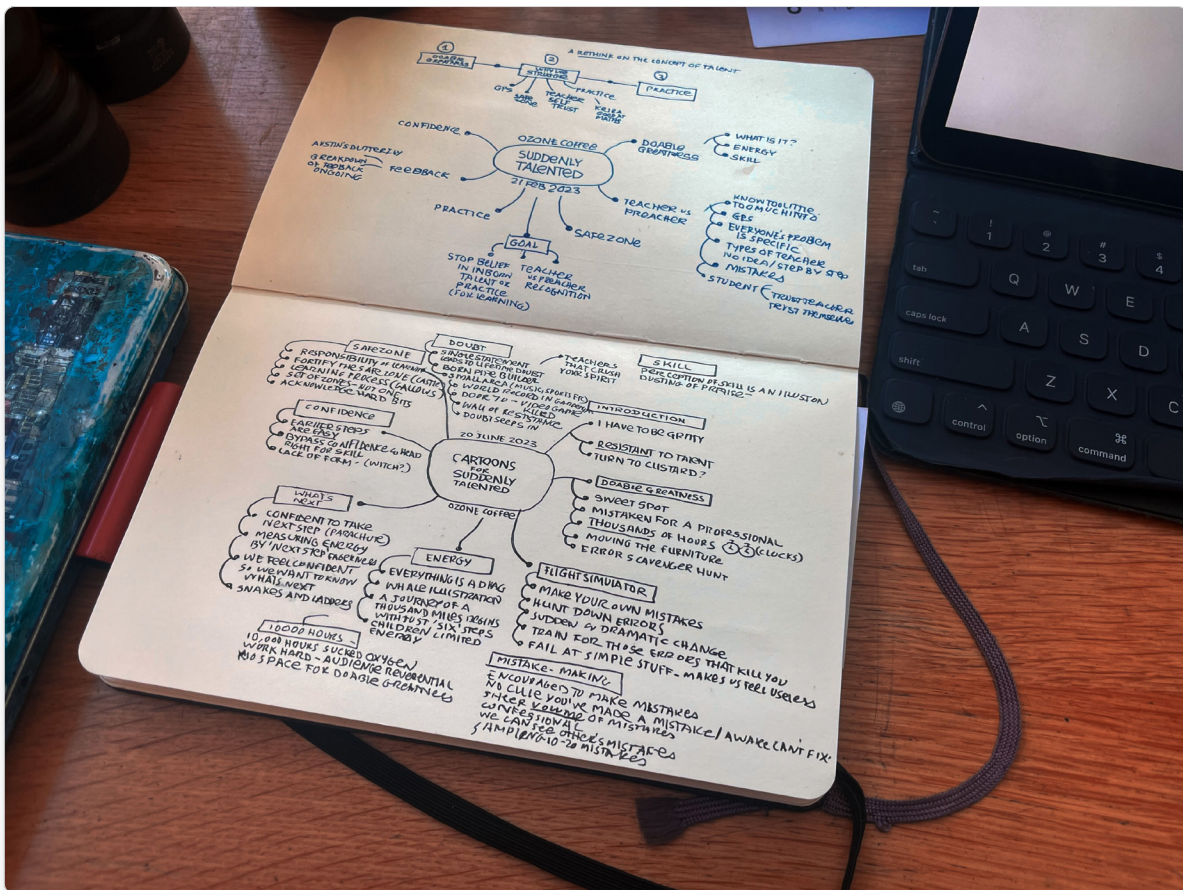 A RETHINK ON THE CONCEPT OF TALENT
1
DOABLE
GREATNESS
2
WHY WE
STRUGGLE
3
PRACTICE
GPS
SAFE
ZONE
TEACHER
SELF
TRUST
PRACTICE
CONFIDENCE
AUSTIN'S BUTTERFLY
BREAKDOWN
OF FEEDBACK
ONGOING
FEEDBACK
PRACTICE
OZONE COFFEE
SUDDENLY
TALENTED
21 FEB 2023
DOABLE
GREATNESS
WHAT IS IT?
ENERGY
SKILL
TEACHER VS
PREACHER
KNOW TOO LITTLE
TOO MUCH INTO
GPS
EVERYONE'S PROBLEM
IS SPECIFIC
TYPES OF TEACHER
NO IDEA/STEP BY STEP
MISTAKES
STUDENT
TRUST TEACHER
TRUST THEMSELVES
SAFEZONE
GOAL
STOP BELIEF
IN INBORN
TALENT OR
PRACTICE
(FOR LEARNING)
TEACHER
VS PREACHER
RECOGNITION
SAFEZONE
RESPONSIBILITY OF
FORTIFY THE SAFE ZONE (CASTLE)
LEARNING PROCESS (GALLOWS)
SET OF ZONES - NOT ONE
ACKNOWLEDGE HARD BITS
DOUBT
SINGLE STATEMENT
LEADS TO LIFETIME
BORN PIPE BUILDER
SMALL AREA (MUSIC, SPORTS ETC)
WORLD RECORD IN
DOOR 70 - VIDEO GAME
KILLED
WALL OF RESISTANCE
DOUBT SEEPS IN
TEACHERS
THAT CRUSH
YOUR SPIRIT
SKILL
PERCEPTION OF SKILL IS AN ILLUSION
DUSTING OF PRAISE-
INTRODUCTION
I HAVE TO BE GRITTY
RESISTANT TO TALENT
TURN TO CUSTARD?
CONFIDENCE
EARLIER STEPS
ARE EASY
BYPASS CONFIDENCE & HEAD
RIGHT FOR SKILL
LACK OF FORM - (WITCH?)
20 JUNE 2023
CARTOONS
FOR
SUDDENLY
TALENTED
OZONE COFFEE
DOABLE GREATNESS
SWEET SPOT
MISTAKEN FOR A PROFESSIONAL
THOUSANDS OF HOURS (CLOCKS)
MOVING THE FURNITURE
ERROR SCAVENGER HUNT
WHATS
NEXT
CONFIDENT TO TAKE
NEXT STEP (PARACHUTE)
MEASURING ENERGY
BY 'NEXT STEP' EAGERNESS
WE FEEL CONFIDENT
SO WE WANT TO KNOW
WHATS NEXT
SNAKES AND LADDERS
ENERGY
EVERYTHING IS A DRAG
WHALE ILLUSTRATION
A JOURNEY OF A
THOUSAND MILES BEGINS
WITH JUST 'SIX' STEPS
CHILDREN LIMITED
ENERGY
FLIGHT SIMULATOR
MAKE YOUR OWN MISTAKES
HUNT DOWN ERRORS
SUDDEN & DRAMATIC CHANGE
TRAIN FOR THOSE ERRORS THAT KILL YOU
FAIL AT SIMPLE STUFF - MAKES US FEEL USELESS
10000 HOURS -
10,000 HOURS SUCKED OXYGEN
WORK HARD - AUDIENCE REVERENTIAL
NO SPACE FOR DOABLE GREATNESS
MISTAKE-MAKING
ENCOURAGED TO MAKE MISTAKES
NO CLUE YOU'VE MADE A MISTAKE/AWARE CAN'T FIX.
SHEER VOLUME OF MISTAKES
CONFESSIONAL
WE CAN SEE OTHER'S MISTAKES
SAMPLING 10-20 MISTAKES
~
!
1
@
2
#
3
$
4
tab
Q
W
E
caps lock
A
S
D
shift
Z
X
C
control
option
⌘
command